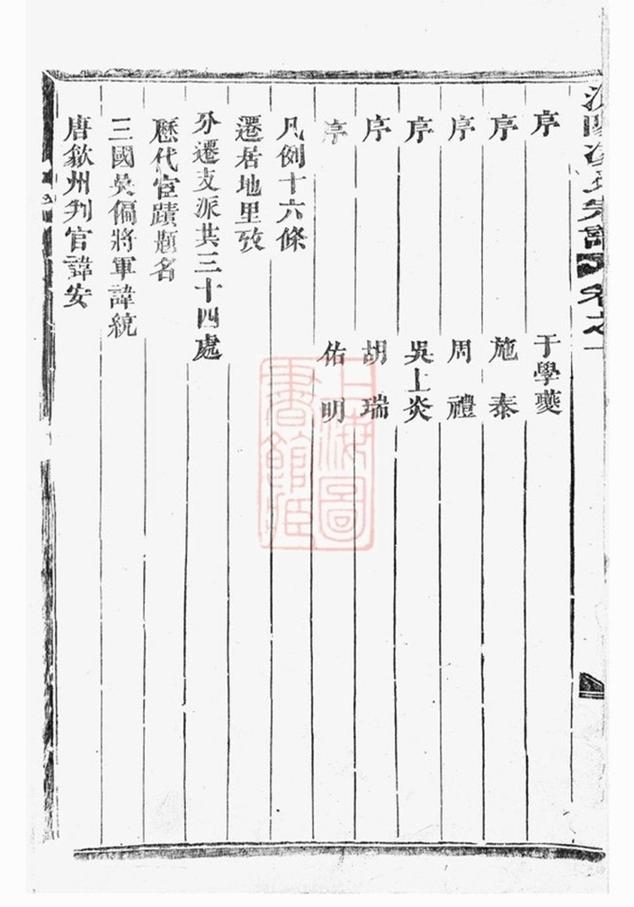 氏宗譜 卷之一
序 于學夔
序 施泰
序 周禮
序 吳上炎
序 胡瑞
序 佑明
凡例十六條
遷居地里攷
外遷支派共三十四處
歷代宦蹟題名
三國吳偏將軍諱統
唐歙州判官諱安
上海圖書館藏